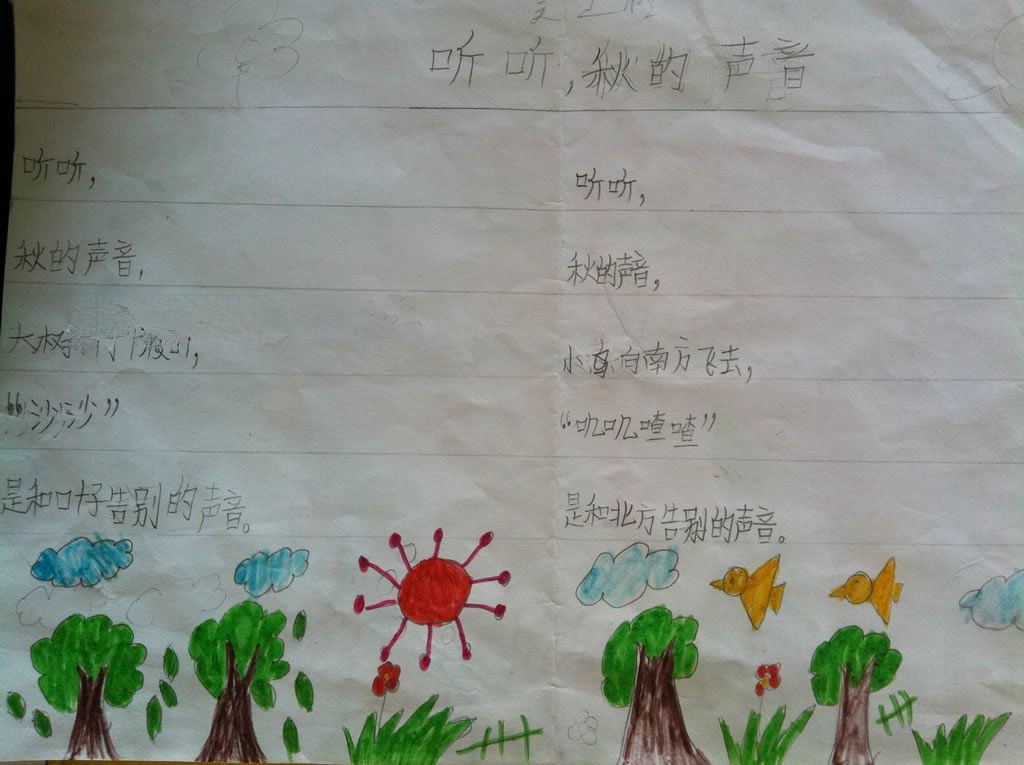 听听,秋的声音
听听,
秋的声音,
大树
“沙沙”
是和叶子告别的声音。
听听,
秋的声音,
小向南方飞去,
“叽叽喳喳”
是和北方告别的声音。